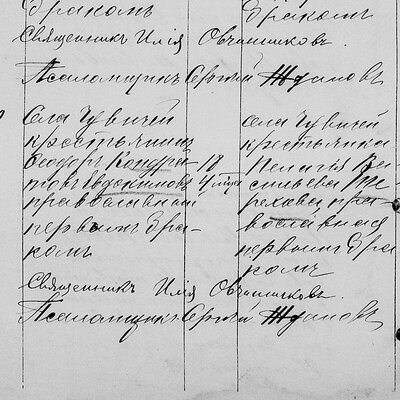 бракомъ бракомъ
Священникъ Илія Овчинниковъ.
Псаломщикъ Сергій Ждановъ
Села Чувичей
крестьянинъ
Ѳеодоръ Кондра-
товъ Евдокимовъ
православный
первымъ бра-
комъ
18
Села Чувичей
крестьянка
Пелагія Ва-
сильева Те-
рехова пра-
вославная
первымъ бра
комъ
Священникъ Илія Овчинниковъ.
Псаломщикъ Сергій Ждановъ